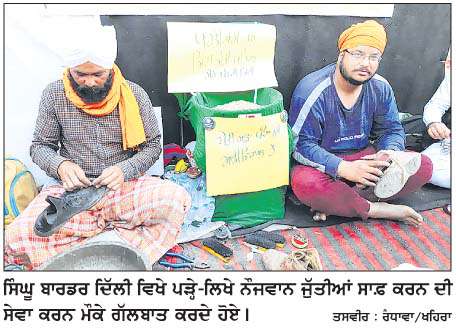 ਸਿੰਘੂ ਬਾਰਡਰ ਦਿੱਲੀ ਵਿਖੇ ਪੜ੍ਹੇ-ਲਿਖੇ ਨੌਜਵਾਨ ਜੁੱਤੀਆਂ ਸਾਫ਼ ਕਰਨ ਦੀ
ਸੇਵਾ ਕਰਨ ਮੌਕੇ ਗੱਲਬਾਤ ਕਰਦੇ ਹੋਏ।
ਤਸਵੀਰ : ਰੰਧਾਵਾ/ਖਹਿਰਾ